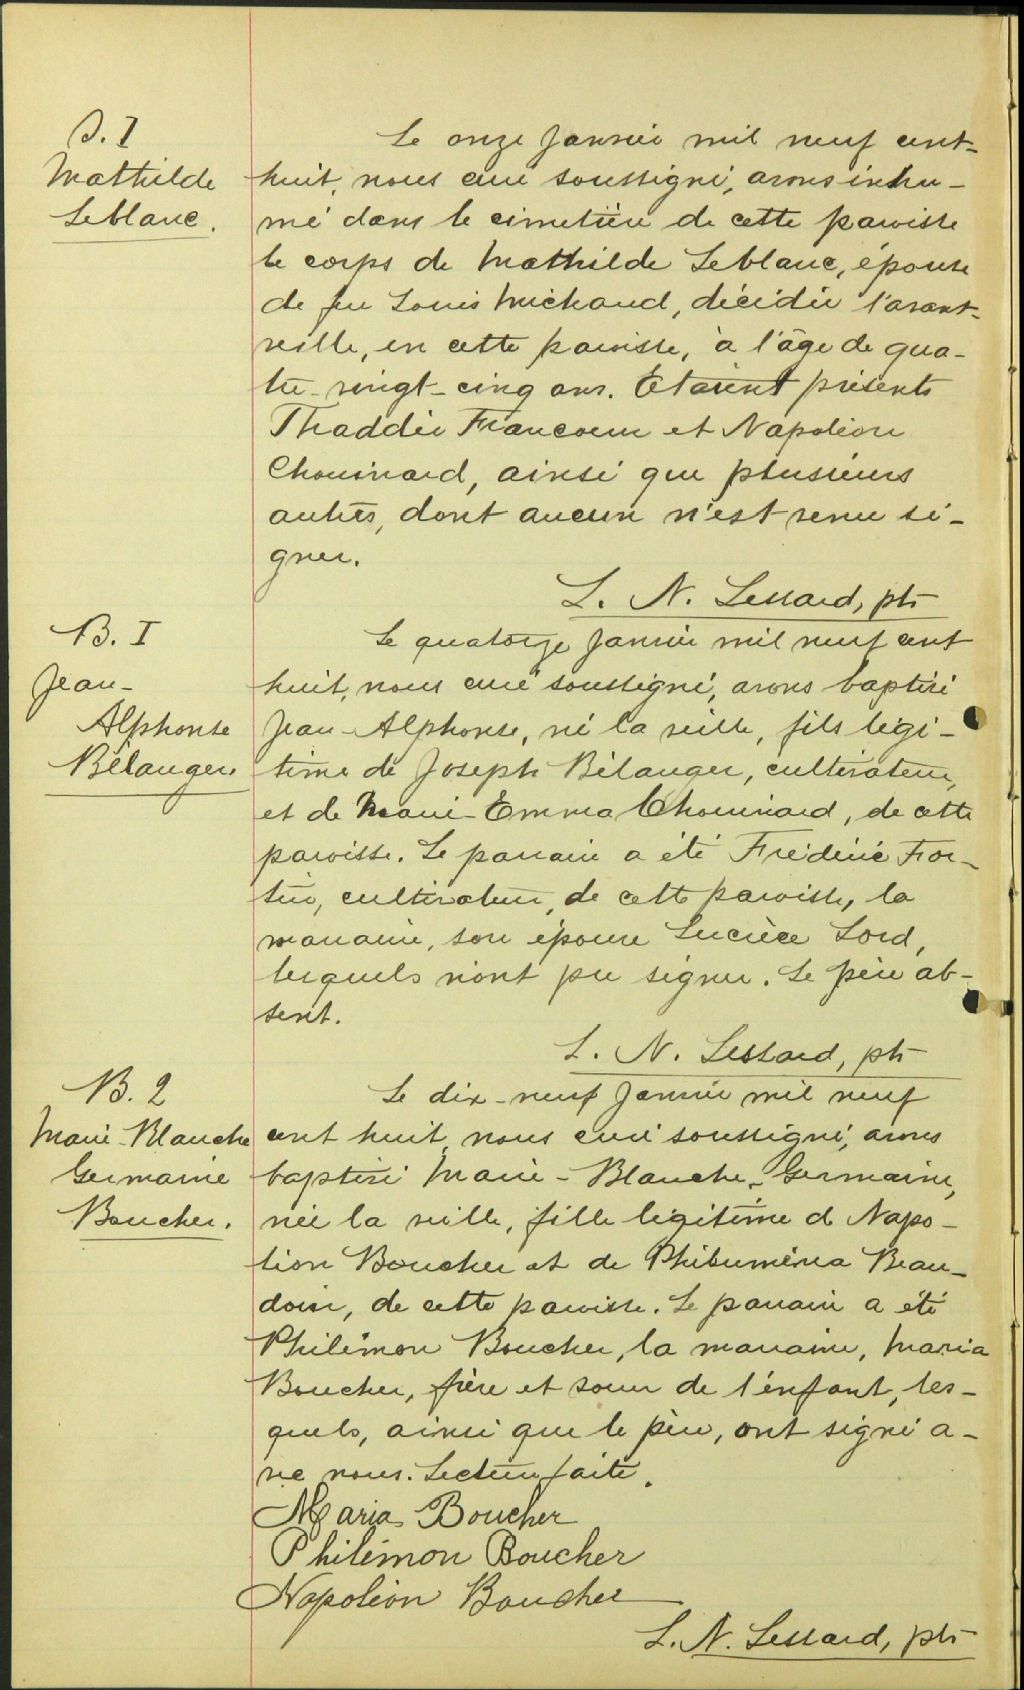 S. 1
Mathilde
Leblanc.
Le onze janvier mil neuf cent-
huit, nous curé soussigné, avons inhu-
mé dans le cimetière de cette paroisse
le corps de Mathilde Leblanc, épouse
de feu Louis Michaud, décédée l'avant-
veille, en cette paroisse, à l'âge de qua-
tre-vingt-cinq ans. Etaient présents
Thaddée Francoeur et Napoléon
Chouinard, ainsi que plusieurs
autres, dont aucun n'est venu si-
gner.
L. N. Lessard, ptr
B. 1
Jean-
Alphonse
Bélanger.
Le quatorze janvier mil neuf cent
huit, nous curé soussigné, avons baptisé
Jean-Alphonse, né la veille, fils légi-
time de Joseph Bélanger, cultivateur,
et de Marie-Emma Chouinard, de cette
paroisse. Le parrain a été Frédéric For-
tin, cultivateur, de cette paroisse, la
marraine, son épouse Lucrèce Lord,
lesquels n'ont pu signer. Le père ab-
sent.
L. N. Lessard, ptr
B. 2
Marie-Blanche
Germaine
Boucher.
Le dix-neuf janvier mil neuf
cent huit, nous curé soussigné, avons
baptisé Marie-Blanche-Germaine,
née la veille, fille légitime de Napo-
léon Boucher et de Philuména Beau-
doin, de cette paroisse. Le parrain a été
Philémon Boucher, la marraine, Maria
Boucher, frère et soeur de l'enfant, les-
quels, ainsi que le père, ont signé a-
vec nous. Lecture faite.
Maria Boucher
Philémon Boucher
Napoléon Boucher
L. N. Lessard, ptr